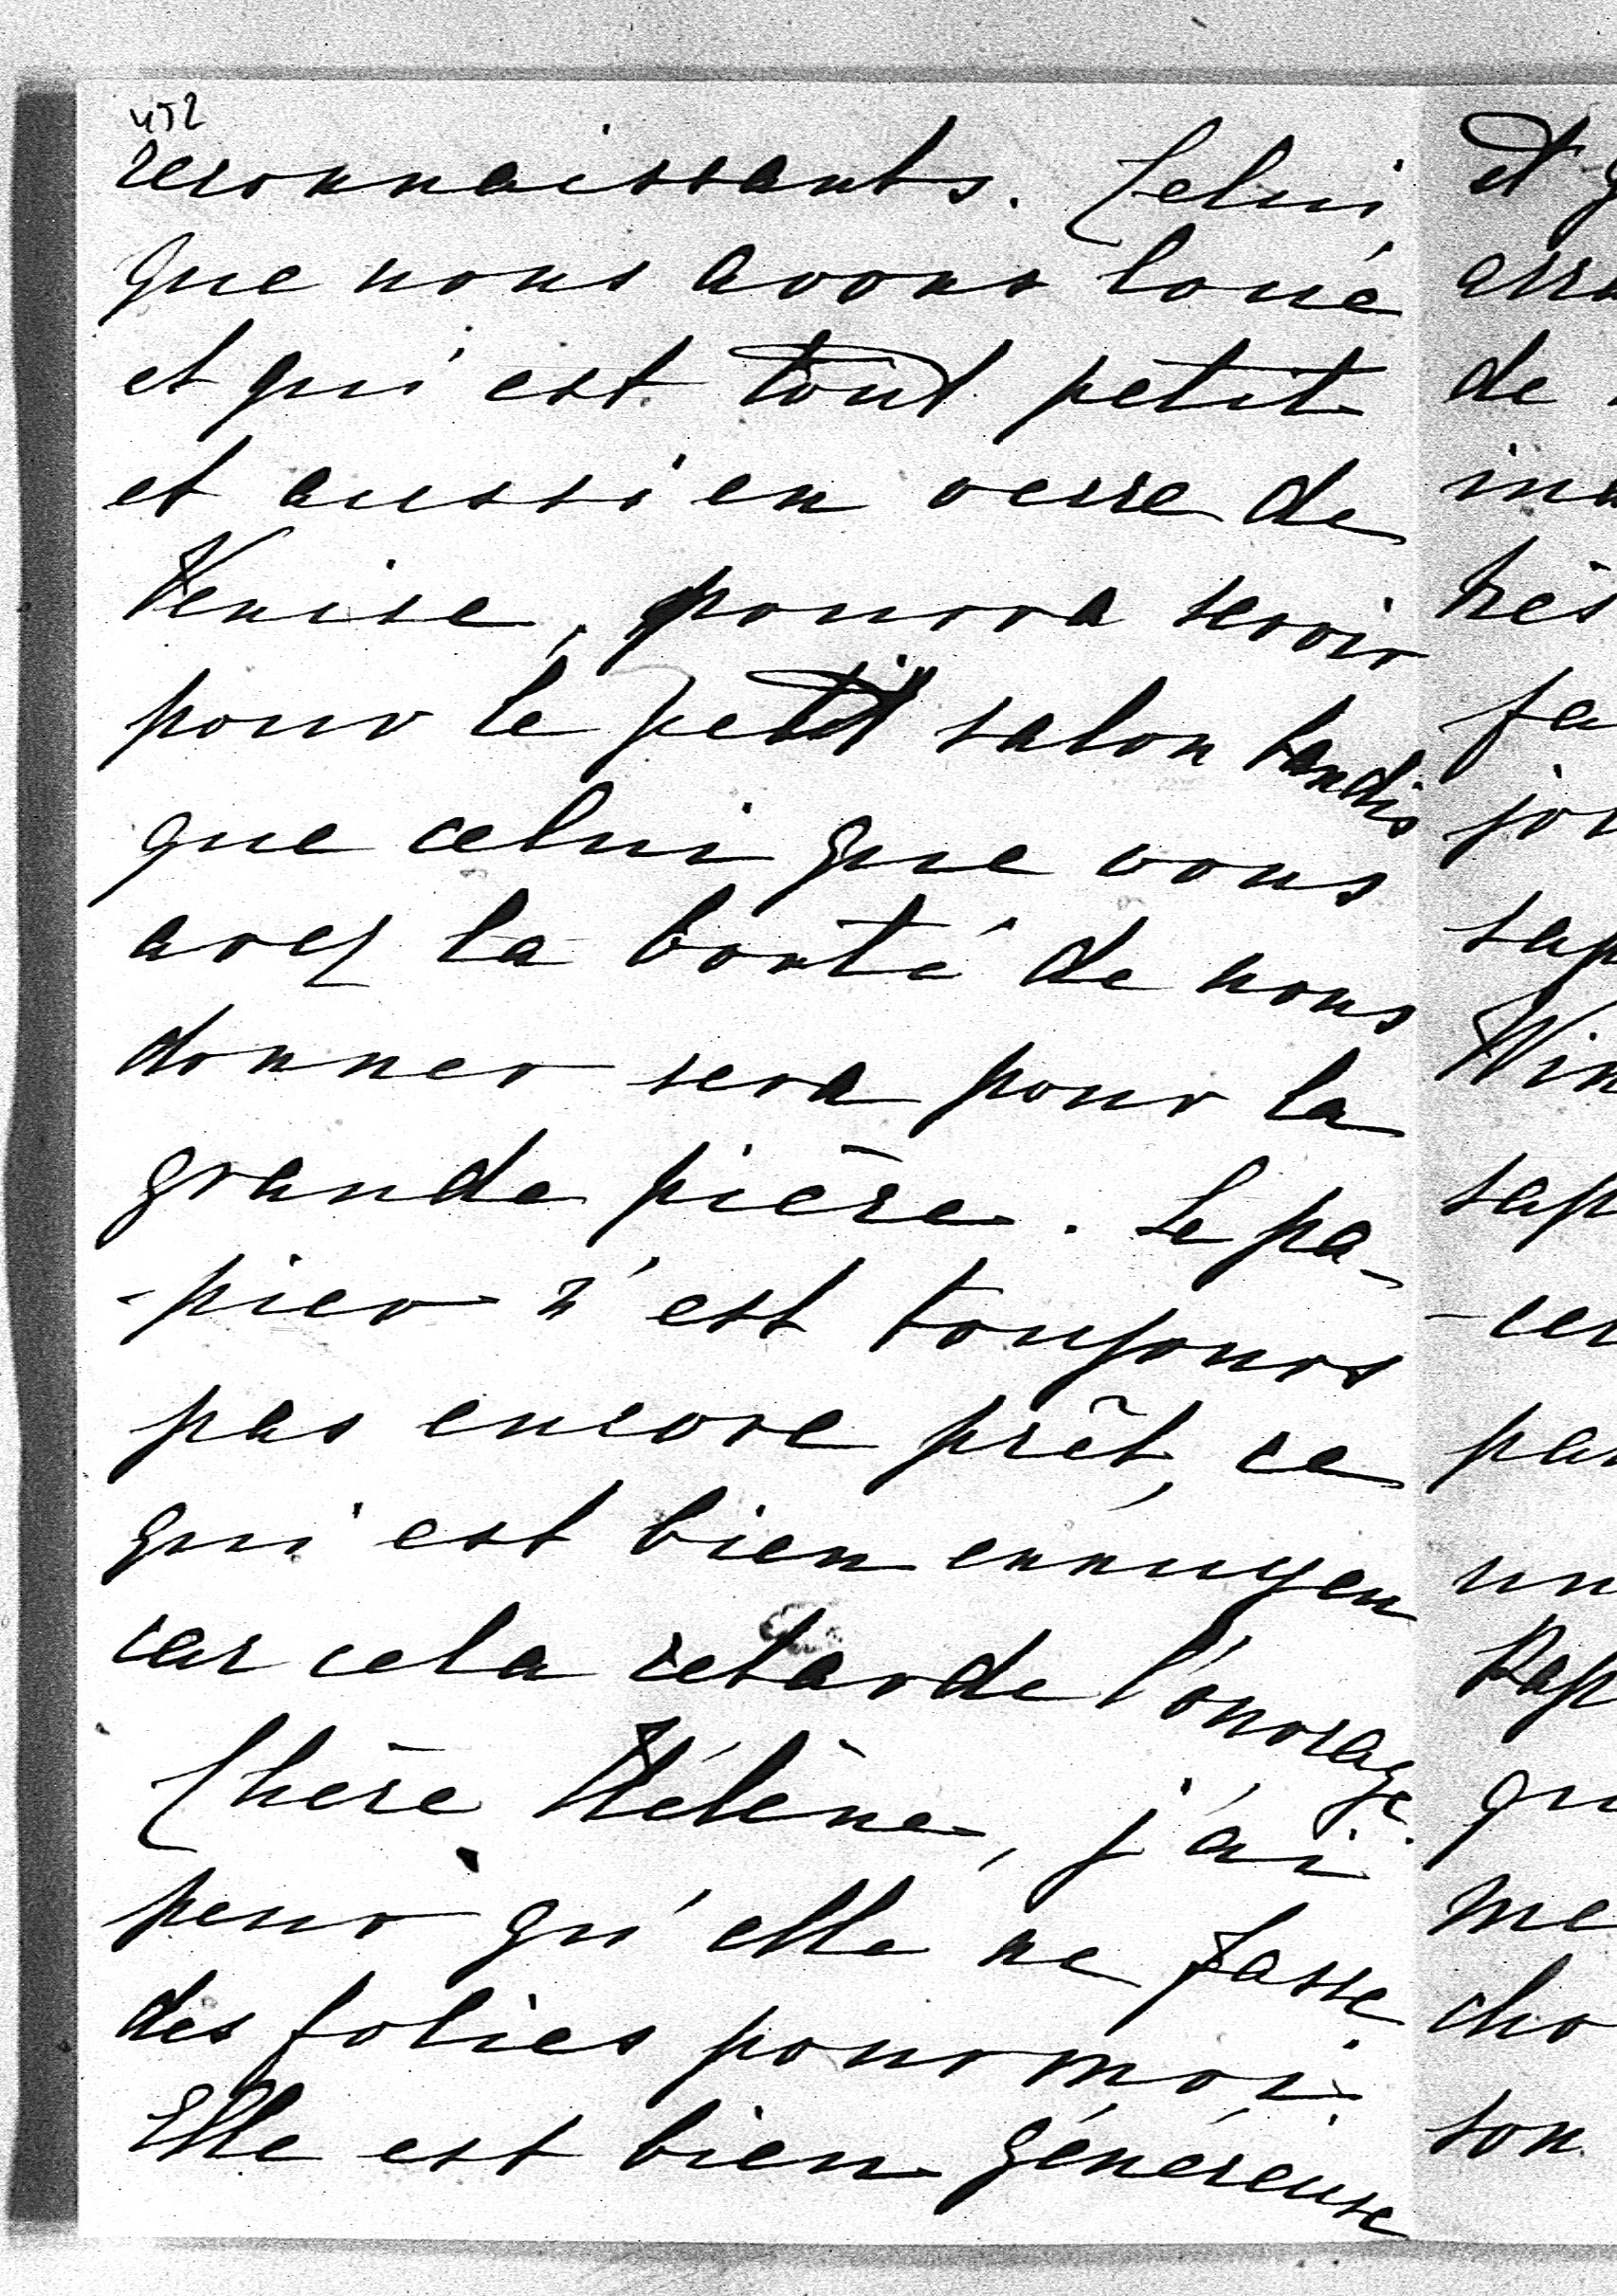 452
reconnaissants. Celui
que nous avons loué
et qui est tout petit
et aussi en verre de
Venise, pourra servir
pour le petit salon tandis
que celui que vous
avez la bonté de nous
donner sera pour la
grande pièce. Le pa-
-pier n'est toujours
pas encore prêt, ce
qui est bien ennuyeu
car cela retarde l'ouvrage.
Chère Hélène, j'ai
peur qu'elle ne fasse
des folies pour moi.
Elle est bien généreuse
et
de
très
son